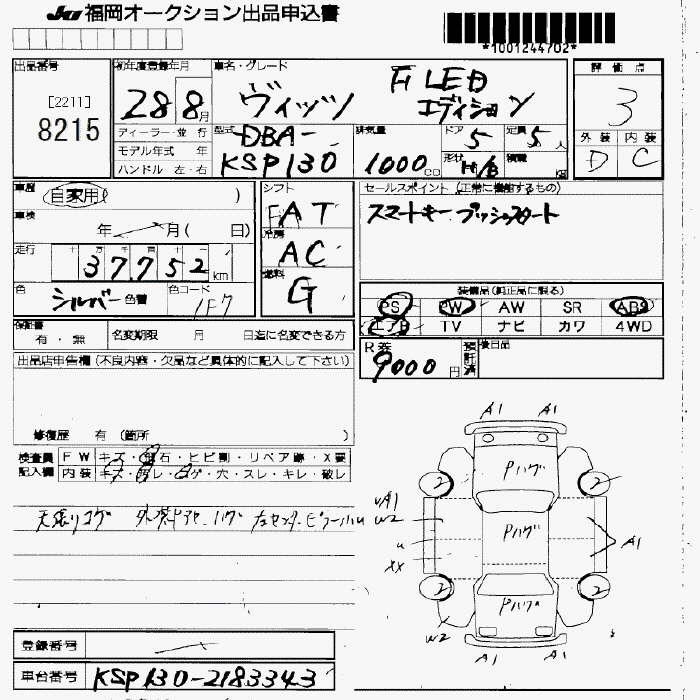 JU 福岡オークション出品申込書
*1001244702*
出品番号
[2211]
8215
初年度登録年月
28 8月
ディーラー・並 行
モデル年式 年
ハンドル 左・右
車名・グレード
ヴィッツ
F LED
エディション
型式
DBA-
KSP130
排気量
1000 cc
ドア
5
定員
5 人
形状
H/B
積載
kg
評価点
3
外装 内装
D C
車歴
自家用 )
車検
年 月( 日)
走行
十 万 千 百 十 一
37752 km
色
シルバー 色替
色コード
1F7
シフト
FAT
冷房
AC
燃料
G
セールスポイント (正常に機能するもの)
スマートキー プッシュスタート
装備品(純正品に限る)
PS PW AW SR ABS
エアB TV ナビ カワ 4WD
保証書
有・無
名変期限 月 日迄に名変できる方
R券
9000 円
預託済
後日品
出品店申告欄 (不良内容・欠品など具体的に記入して下さい)
修復歴 有 (箇所 )
検査員
記入欄
FW キズ・飛石・ヒビ割・リペア跡・X要
内装 キズ・汚レ・コゲ・穴・スレ・キレ・破レ
天張りコゲ
A1 A1
Pハゲ
2 2
A1
W2
Pハゲ
u
A1
XX
2 2
Pハゲ
W2
A1 A1
登録番号
車台番号
KSP130-2183343